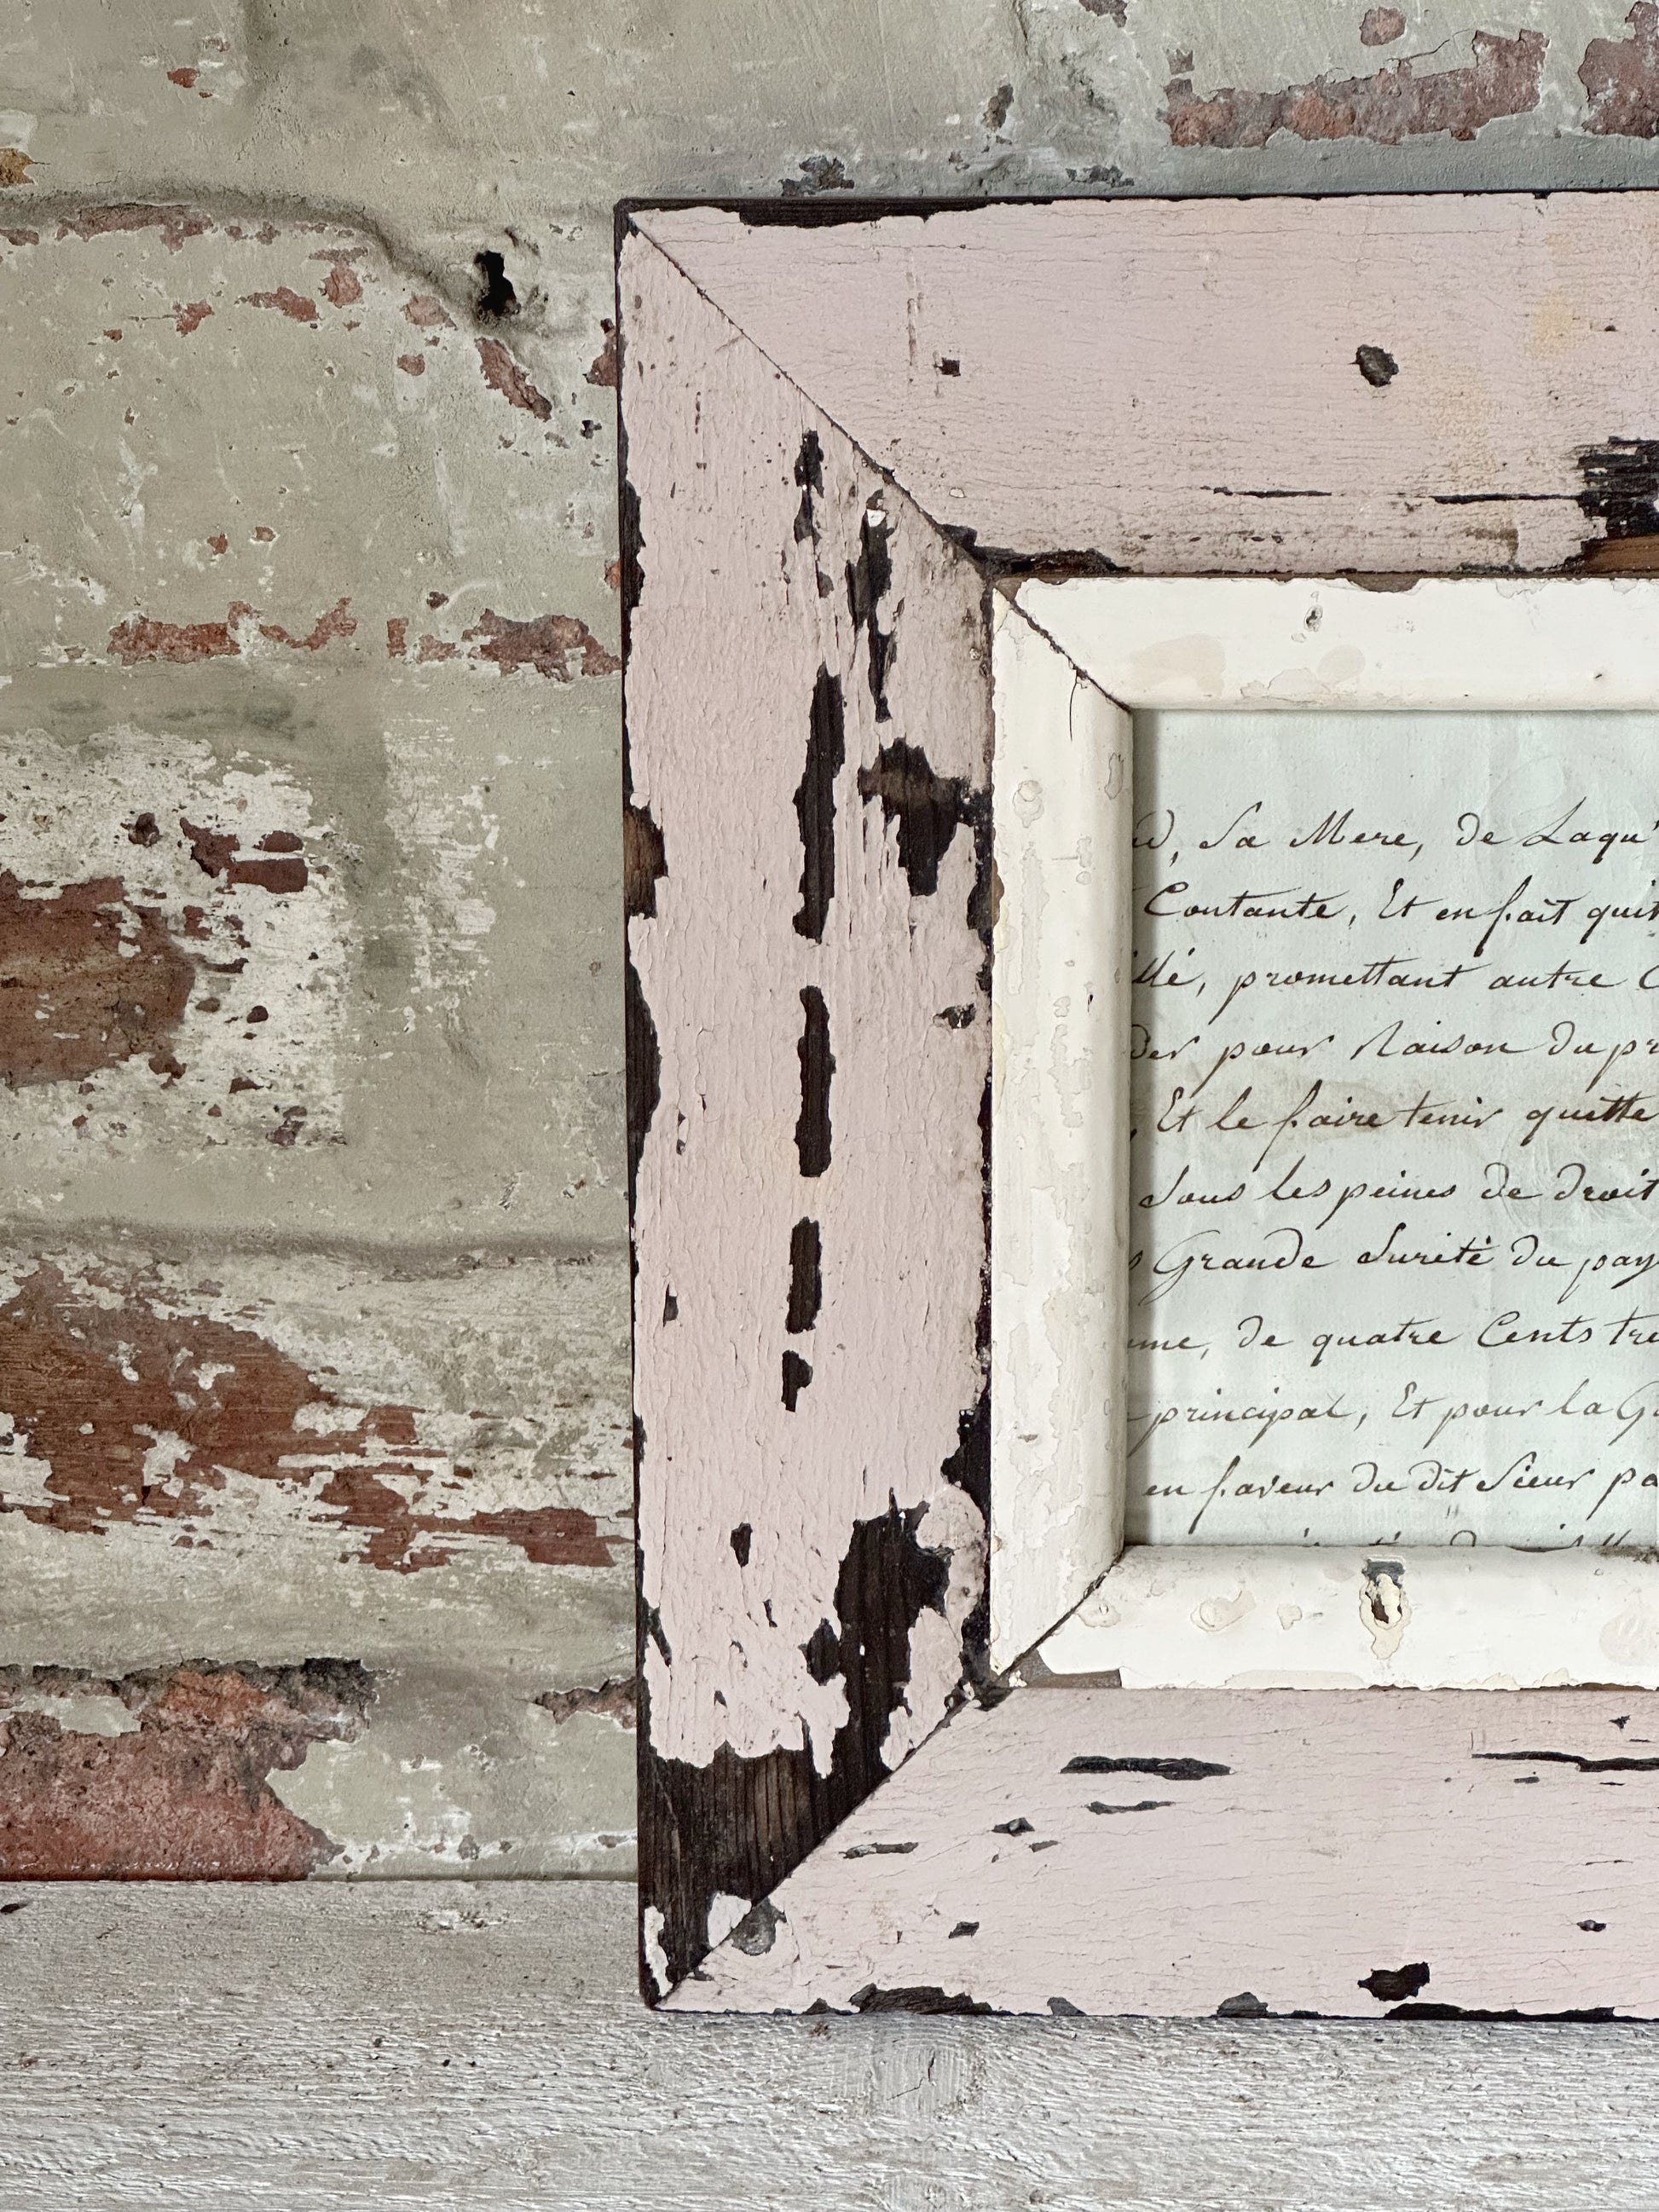 Sa Mere, de Laqu'
Contante, Et en fait quit
promettant autre
pour Raison du pr
Et le faire tenir quitte
Sous les peines de droit
Grande Sureté du pay
de quatre Cents tre
principal, Et pour la G
en faveur du dit Sieur pa